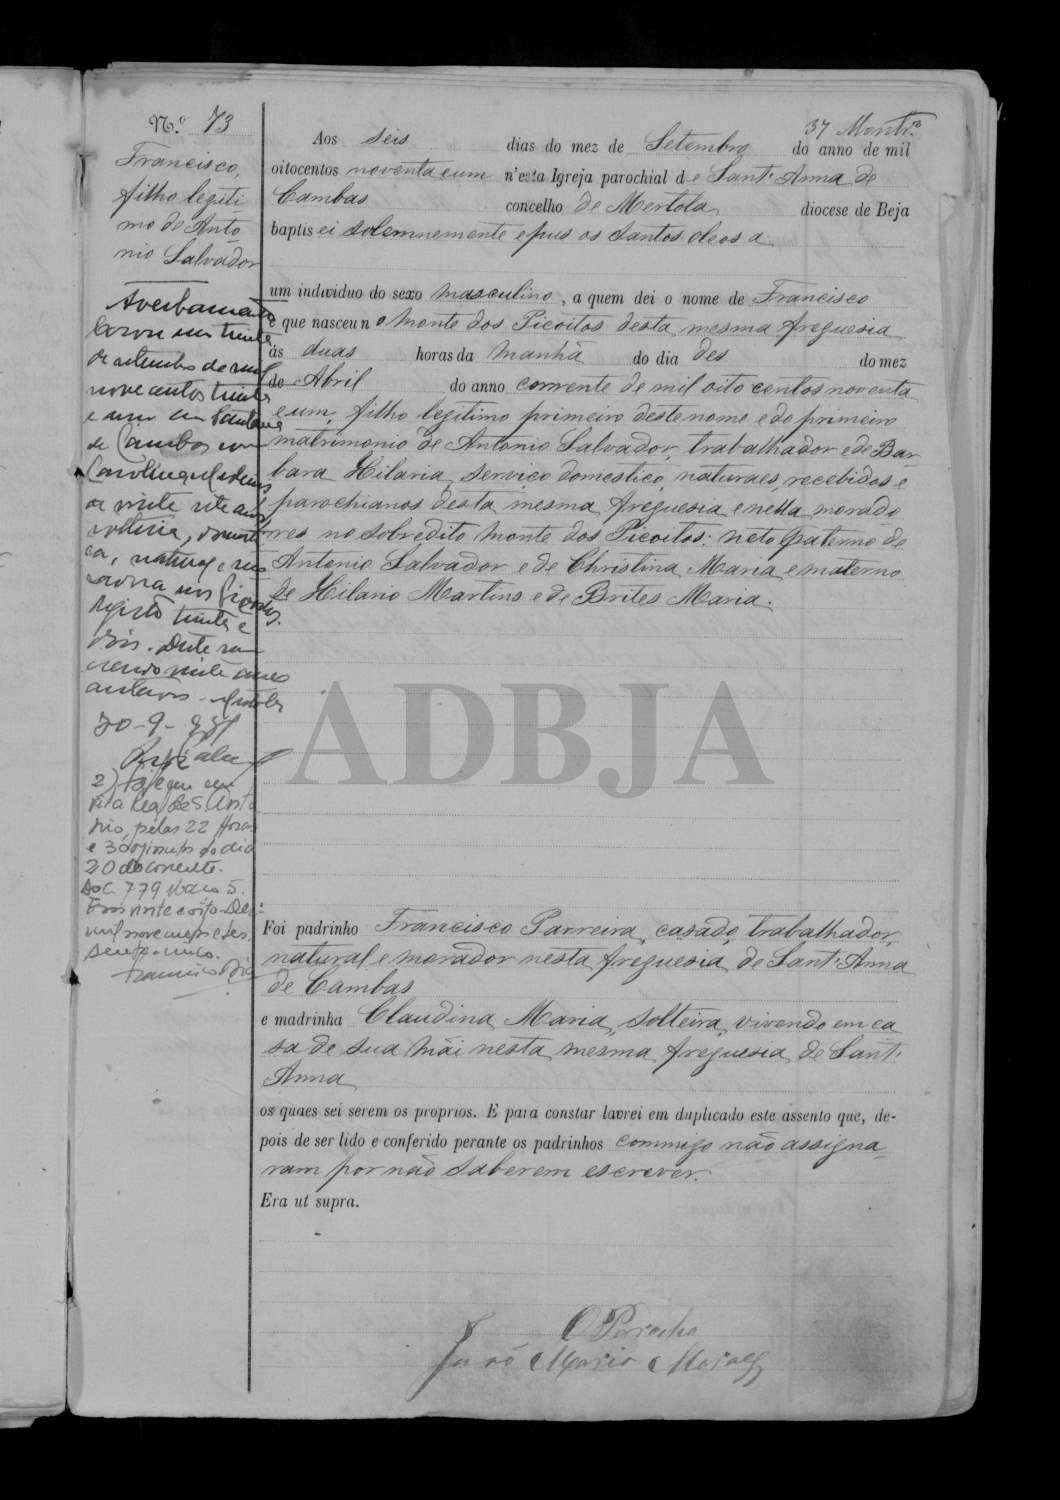 37 Montr.º
N.º 73
Francisco,
filho legiti
mo de Anto
nio Salvador
Aos seis dias do mez de Setembro do anno de mil
oitocentos noventa e um n'esta Igreja parochial de Sant' Anna de
Cambas concelho de Mertola diocese de Beja
baptisei solemnemente e pus os santos oleos a
um individuo do sexo masculino, a quem dei o nome de Francisco
e que nasceu no Monte dos Picoitos desta mesma freguesia
ás duas horas da manhã do dia des do mez
de Abril do anno corrente de mil oito centos noventa
e um, filho legitimo primeiro deste nome e do primeiro
matrimonio de Antonio Salvador, trabalhador e de Bar
bara Hilaria, serviço domestico, naturaes, recebidos e
parochianos desta mesma freguesia e nella morado
res no sobredito monte dos Picoitos: neto paterno de
Antonio Salvador e de Christina Maria e materno
de Hilario Martins e de Brites Maria.
Averbamento
em trinta
de setembro de mil
novecentos trinta
e um em Santana
de Cambas com
de vinte sete anos
solteira, domesti
ca, natural e
registo trinta e
dois.
vinte anos
30-9-931
2) Faleceu
pelas 22 horas
e 30 minutos do dia
20 do corrente.
Doc. 779 Maço 5.
Em vinte e oito
mil novecentos e ses
senta e cinco.
ADBJA
Foi padrinho Francisco Parreira, casado, trabalhador,
natural e morador nesta freguesia de Sant' Anna
de Cambas
e madrinha Claudina Maria, solteira, vivendo em ca
sa de sua mãi nesta mesma freguesia de Sant'
Anna
os quaes sei serem os proprios. E para constar lavrei em duplicado este assento que, de-
pois de ser lido e conferido perante os padrinhos commigo não assigna
ram por não saberem escrever.
Era ut supra.
O Parocho
José Maria Moraes